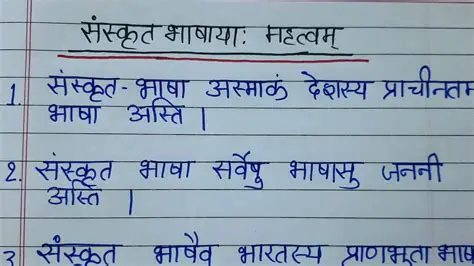 संस्कृत भाषायाः महत्वम्
1. संस्कृत - भाषा अस्माकं देशस्य प्राचीनतम
भाषा अस्ति ।
2. संस्कृत भाषा सर्वेषु भाषासु जननी
अस्ति ।
3 संस्कृत भाषैव भारतस्य प्राणभूता भाषा